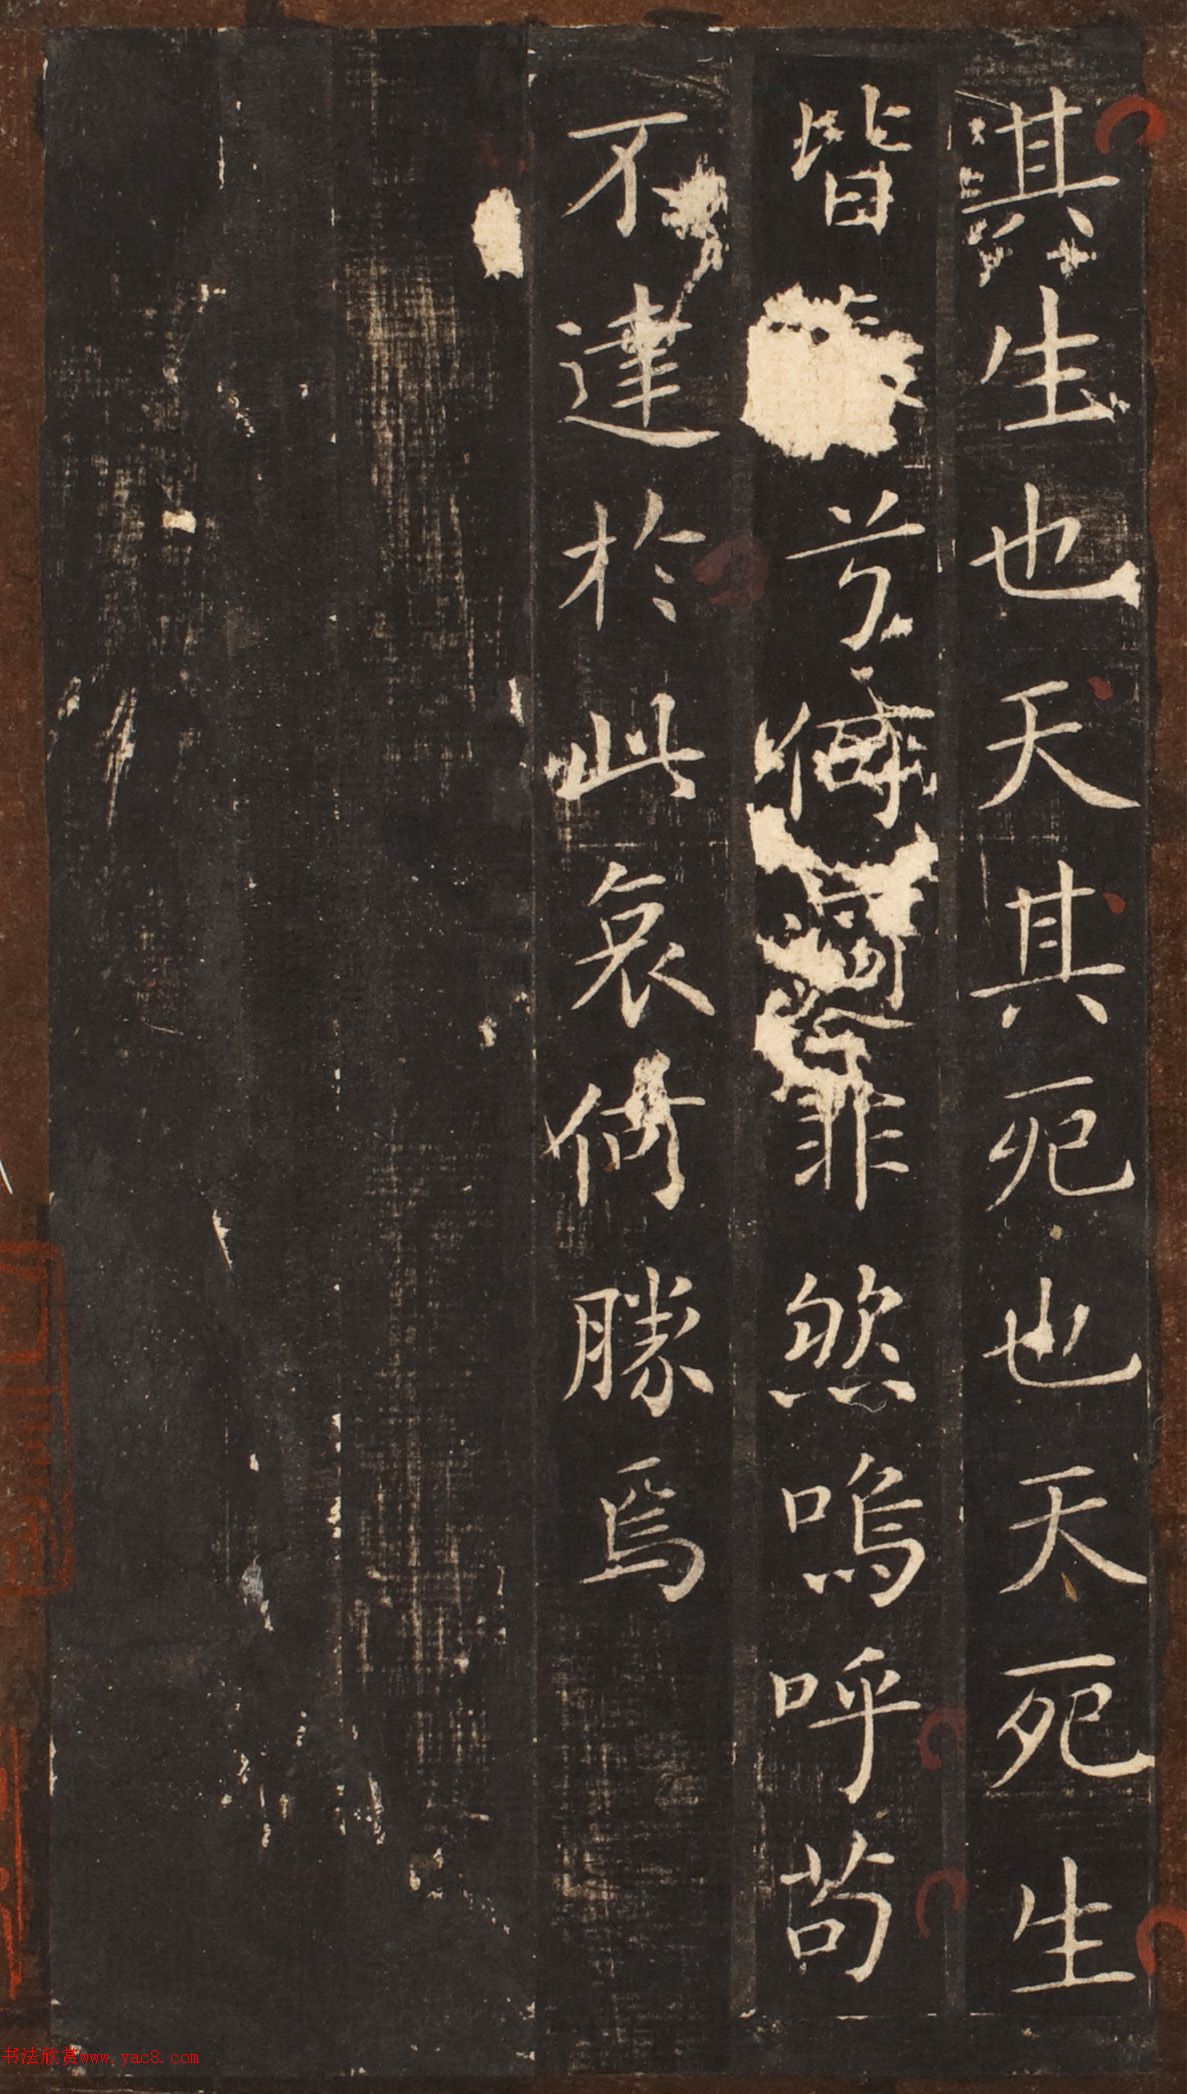 其生也天其死也天死生
皆天兮何所罪然嗚呼苟
不達於此哀何勝焉
书法欣赏www.yac8.com